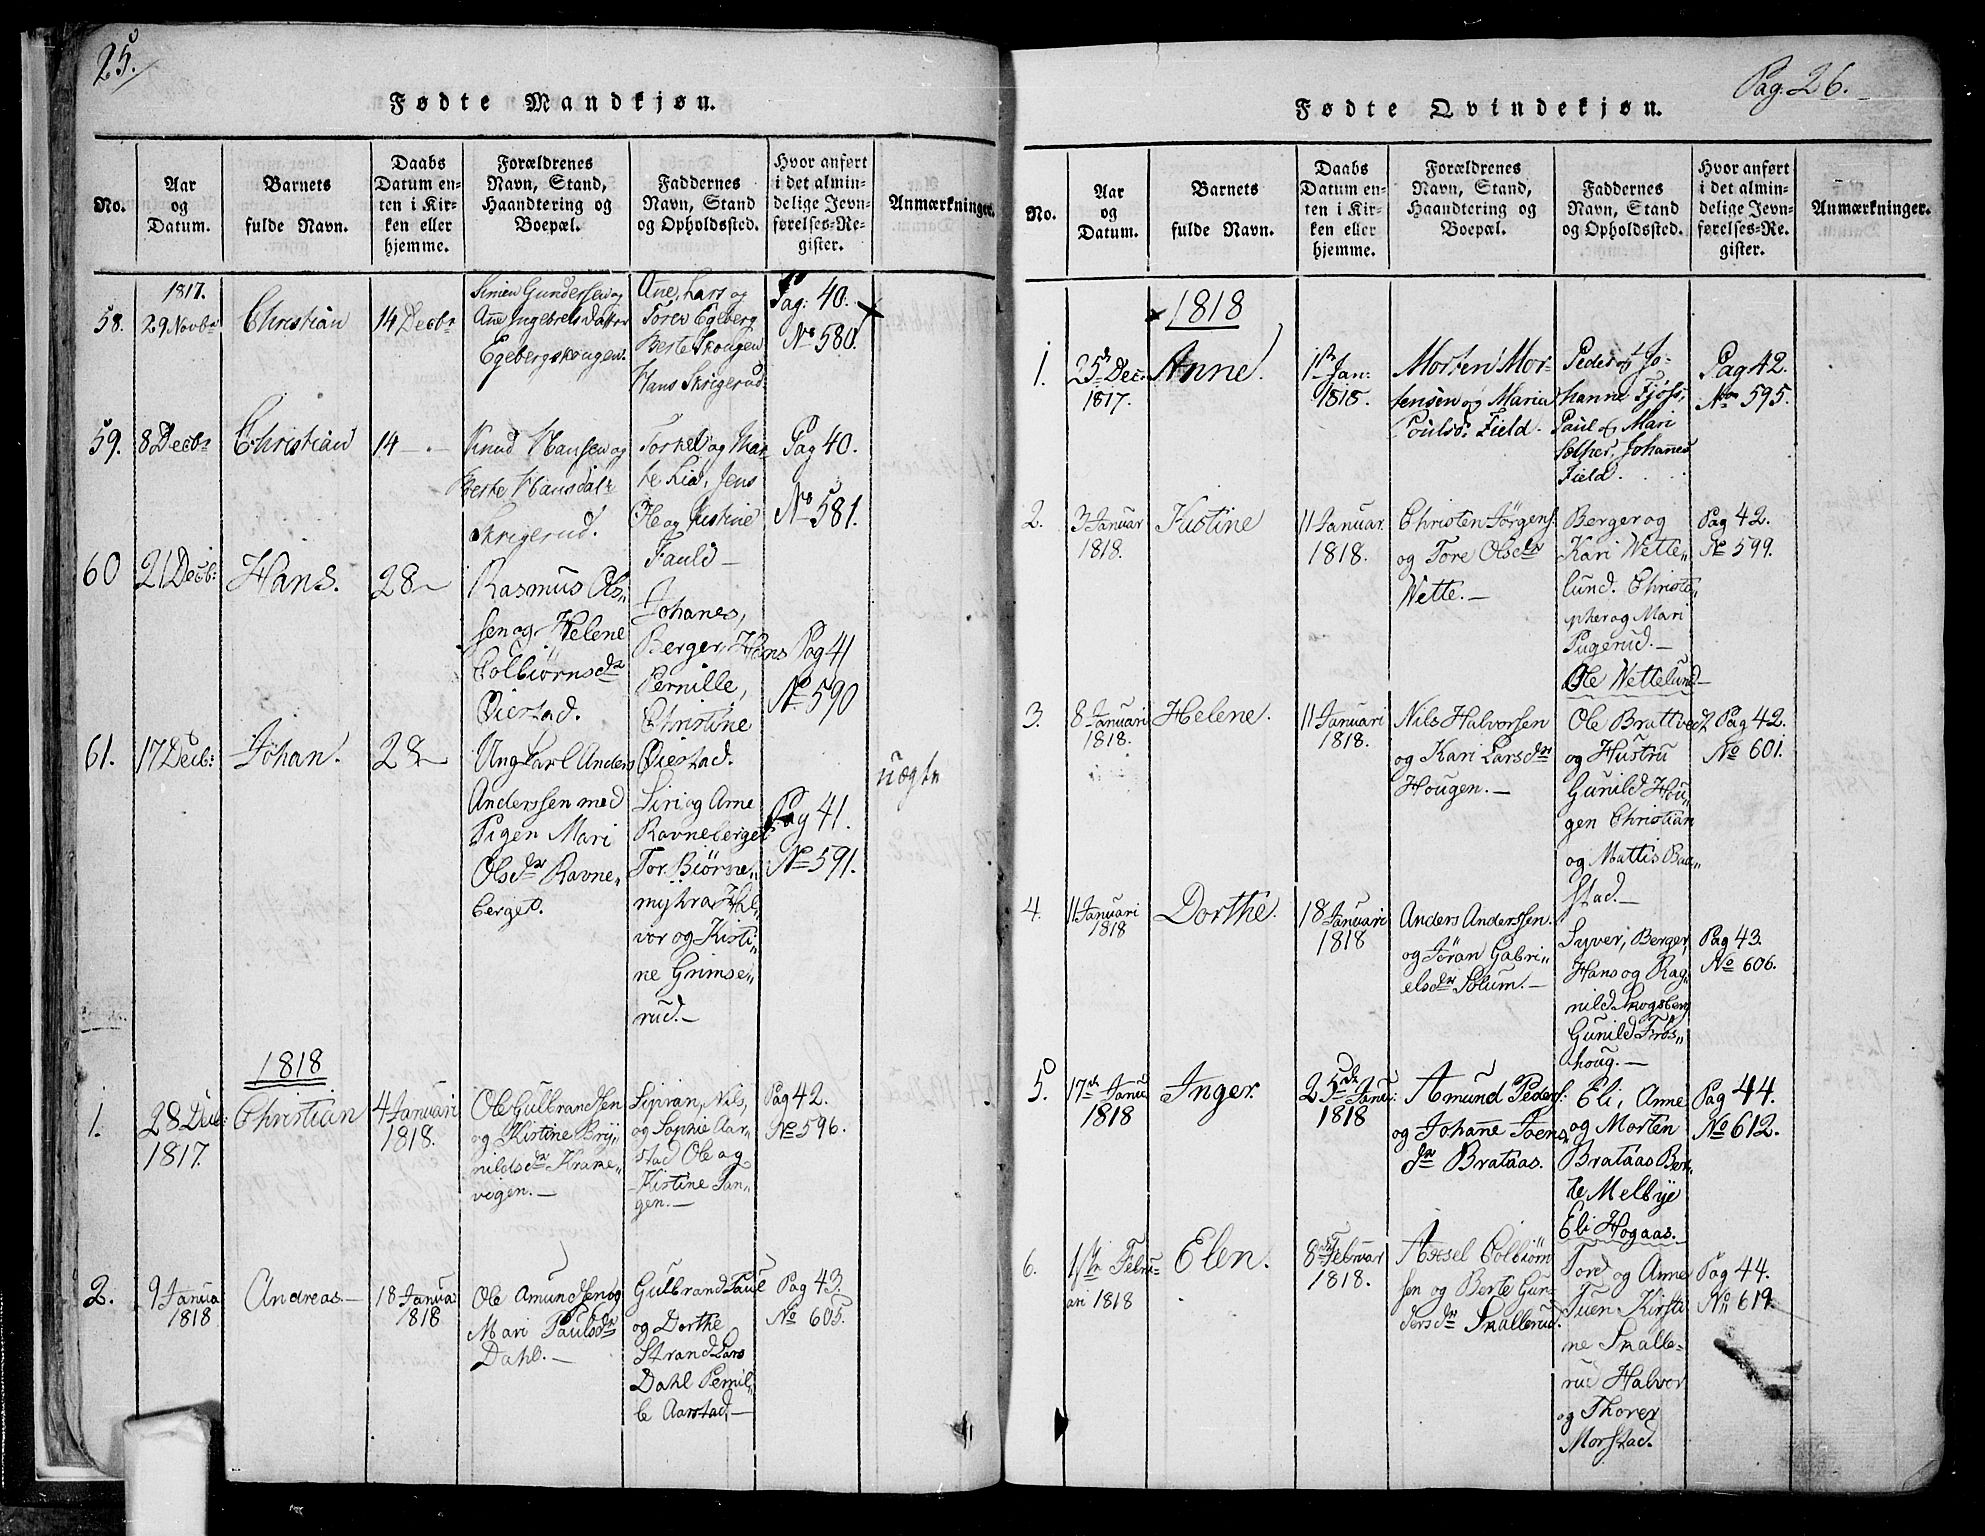 25.
Fødte Mandkjøn.
No.
Aar
og
Datum.
Barnets
fulde Navn.
Daabs
Datum en-
ten i Kir-
ken eller
hjemme.
Forældrenes
Navn, Stand,
Haandtering og
Boepæl.
Faddernes
Navn, Stand
og Opholdssted.
Hvor anført
i det almin-
delige Jevn-
førelses-Re-
gister.
Anmærkninger.
58.
1817.
29 Novbr
Christian
14 Decbr
Simen Gundersen og
Anne Ingebrets Datter
Egebergskougen.
Ane, Lars og
Tores Egeberg
Berte Skougen
Hans Skrigerud
Pag: 40.
No 580.
59.
8 Decbr
Christian
14 - . -
Knud Hansen og
Berte Hansdatr
Skrigerud.
Torkel og Mar-
te Lid, Jens
Ole og Justine
Fauld —
Pag 40.
No 581.
60
21 Decb:
Hans.
28 —
Rasmus Ols„
sen og Helene
Colbiørnsdr
Øiestad.
Johanes,
Berger, Hans
Pernille,
Christine
Øiestad.
Pag 41
No 590
61.
17 Decb:
Johan.
28 —
Ungkarl Anders
Anderssen med
Pigen Mari
Olsdr Ravne„
berget.
Siri og Arne
Ravneberget
Tor Biørne„
myhra Hal„
vor og Kisti„
ne Grimse„
rud. —
Pag 41.
No 591.
uægte
1818
1.
28 Dec:
1817.
Christian
4 Januari
1818.
Ole Gulbrandsen
og Kistine Bry„
nildsdr Krane„
vigen. —
Siprian, Nils,
og Sophie Aar„
stad Ole og
Kistine Tan„
gen. —
Pag 42.
No 596.
2.
9 Janua
1818
Andreas —
18 Janua
1818
Ole Amundsen og
Mari Paulsdr
Dahl. —
Gulbrand Paul
og Dorthe
Strand Lars
Dahl Pernil„
le Aarstad, —
Pag 43.
No 605.
Pag. 26.
Fødte Qvindekjøn.
No.
Aar
og
Datum.
Barnets
fulde Navn.
Daabs
Datum en-
ten i Kir-
ken eller
hjemme.
Forældrenes
Navn, Stand,
Haandtering og
Boepæl.
Faddernes
Navn, Stand
og Opholdssted.
Hvor anført
i det almin-
delige Jevn-
førelses-Re-
gister.
Anmærkninger.
1818
1.
25 Dec.
1817.
Anne.
1st Jan:
1818.
Morten Mor-
tensen og Maria
Poulsd: Field.
Peder & Jo-
hanne Fjøss,
Paul & Mari
Sæther, Johannes
Field.
Pag 42.
No 595.
2.
3 Januar
1818.
Kistine
11 Januar.
1818.
Christen Jørgens.
og Tore Olsdr
Wette. —
Berger og
Kari Wette„
lund. Christo„
pher og Mari
Pugerud. —
Ole Wettelund —
Pag 42.
No 599.
3.
8 Januari
1818.
Helene.
11 Januari
1818.
Nils Halvorsen
og Kari Larsdr
Hougen. —
Ole Brattvedt
og Hustru
Gunild Hou„
gen Christian
og Mattis Bac„
stad. —
Pag 42.
No 601.
4.
11 Januari
1818
Dorthe.
18 Januari
1818
Anders Anderssen.
og Jöran Gabri„
elsdr Solum. —
Syver, Berger,
Hans og Rag„
nild Skogsberg
Gunild Frøs„
houg. —
Pag 43.
No 606.
5.
17de Janu
1818
Inger.
25de Janu:
1818
Amund Peders:
og Johanne Joens
dr Brataas.
Eli, Anne
og Morten
Brataas Ber„
te Melbye
Eli Hogaas.
Pag 44.
No 612.
6.
1ste Febru-
ari 1818
Elen.
8de Februar
1818.
Axel Colbiøn
sen og Berte Gun„
dersdr Snallerud.
Tord og Anne
Tuen, Kirsti
ne Snalle„
rud Halvor
og Thorer
Morstad.
Pag 44.
No 619.